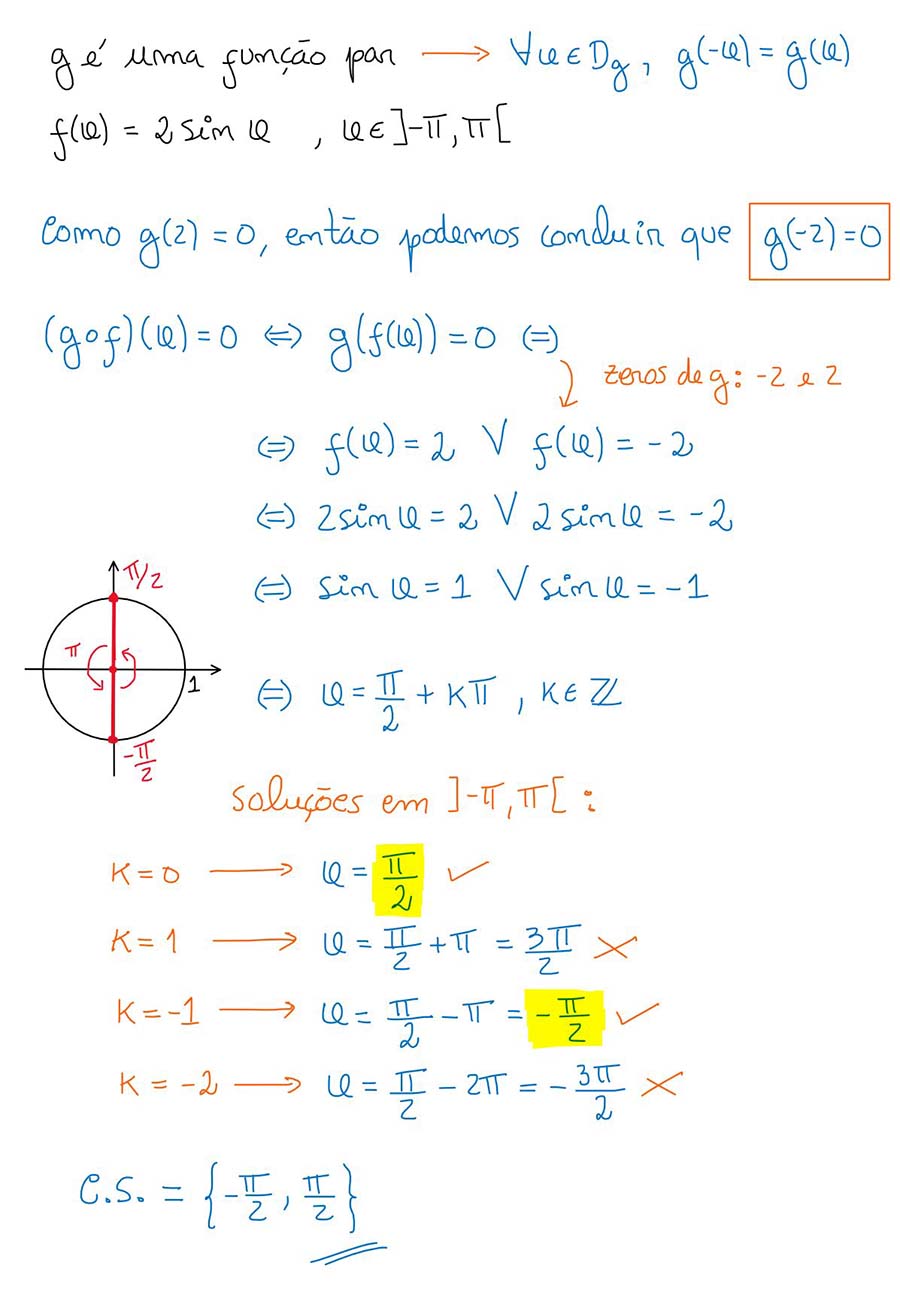 g é uma função par ⟶ ∀x ∈ Dg, g(-x) = g(x)
f(x) = 2 sin x , x ∈ ]-π, π[
Como g(2) = 0, então podemos concluir que g(-2) = 0
(g∘f)(x) = 0 ⇔ g(f(x)) = 0 ⇔
zeros de g: -2 e 2
⇔ f(x) = 2 ∨ f(x) = -2
⇔ 2 sin x = 2 ∨ 2 sin x = -2
π/2
⇔ sin x = 1 ∨ sin x = -1
π
1
⇔ x = π/2 + kπ , k ∈ ℤ
-π/2
Soluções em ]-π, π[ :
K = 0 ⟶ x = π/2 ✓
K = 1 ⟶ x = π/2 + π = 3π/2 ✗
K = -1 ⟶ x = π/2 - π = -π/2 ✓
K = -2 ⟶ x = π/2 - 2π = -3π/2 ✗
C.S. = {-π/2, π/2}